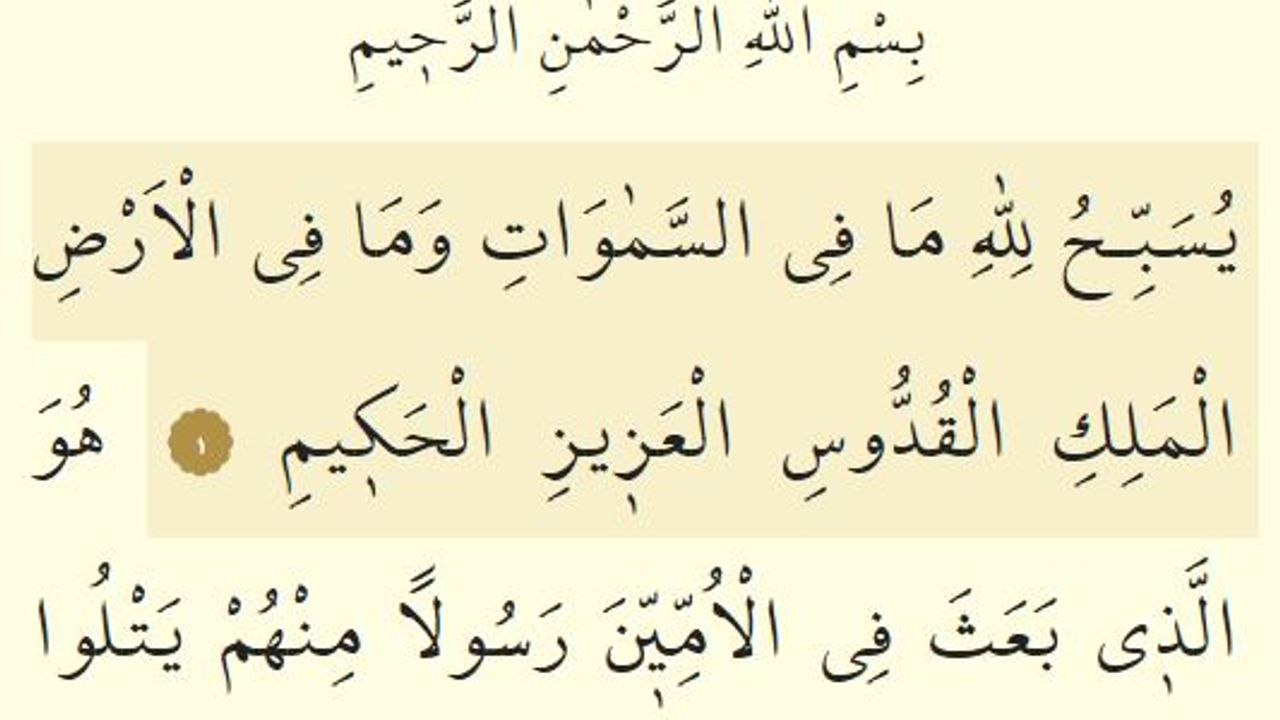 بِسْمِ اللّٰهِ الرَّحْمٰنِ الرَّح۪يمِ
يُسَبِّحُ لِلّٰهِ مَا فِى السَّمٰوَاتِ وَمَا فِى الْاَرْضِ
الْمَلِكِ الْقُدُّوسِ الْعَز۪يزِ الْحَك۪يمِ ١ هُوَ
الَّذ۪ى بَعَثَ فِى الْاُمِّيّ۪نَ رَسُولًا مِنْهُمْ يَتْلُوا